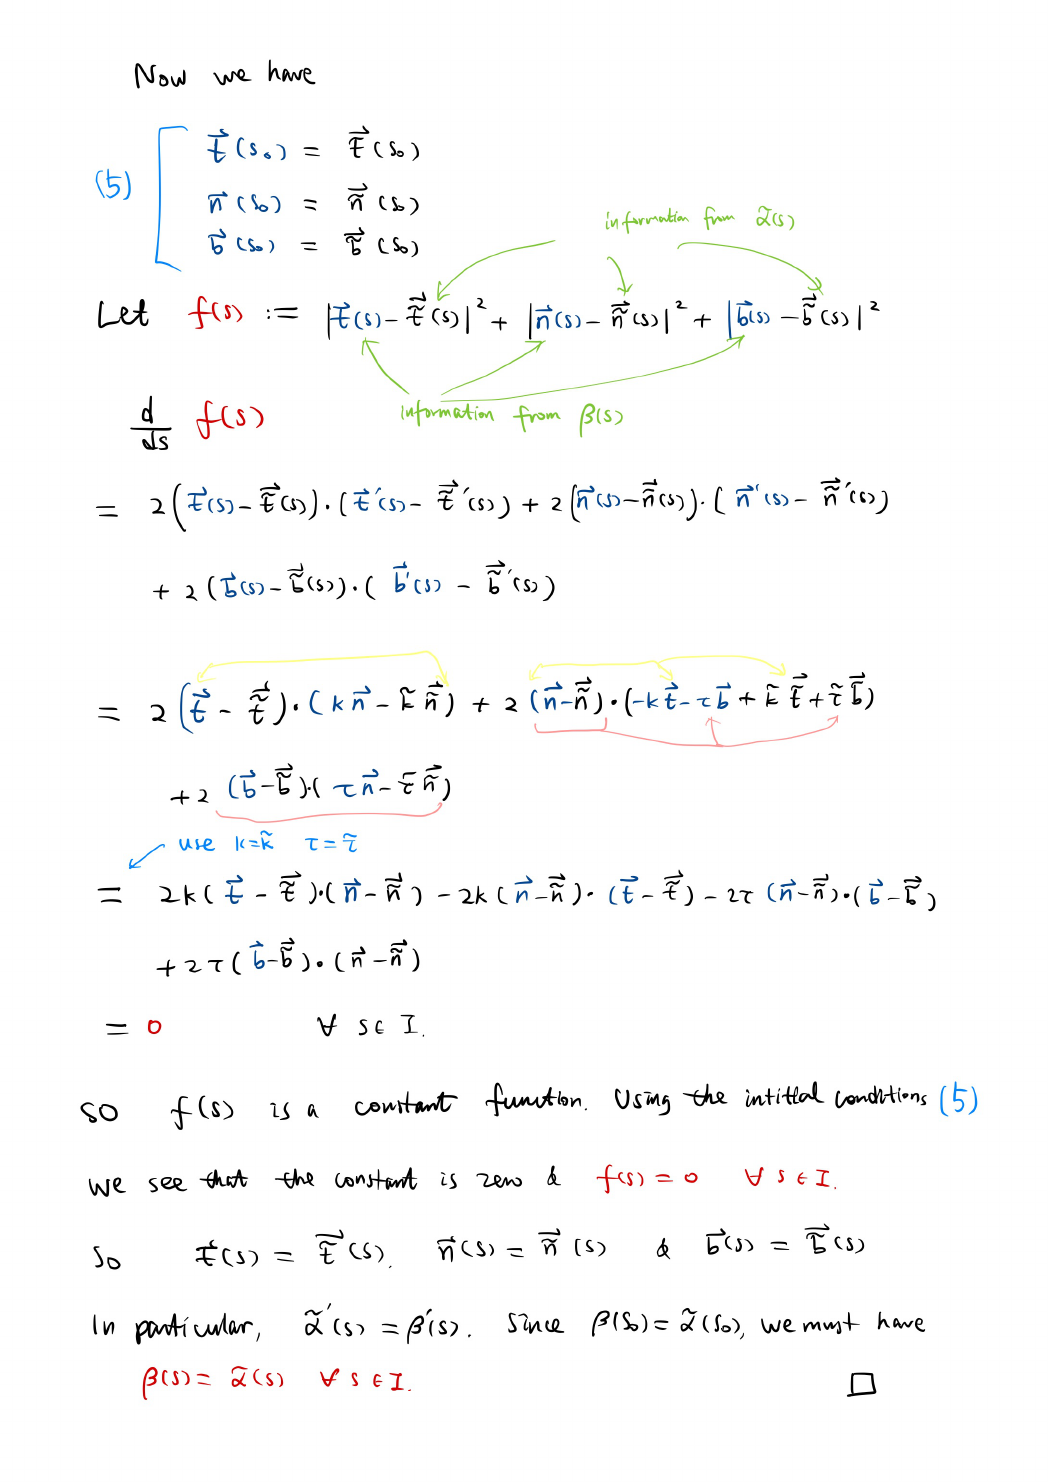 Now we have
t⃗(s₀) = t̃⃗(s₀)
(5) n⃗(s₀) = ñ⃗(s₀)
b⃗(s₀) = b̃⃗(s₀)
information from α̃(s)
Let f(s) := |t⃗(s) - t̃⃗(s)|² + |n⃗(s) - ñ⃗(s)|² + |b⃗(s) - b̃⃗(s)|²
information from β(s)
d/ds f(s)
= 2(t⃗(s) - t̃⃗(s))·(t⃗'(s) - t̃⃗'(s)) + 2(n⃗(s) - ñ⃗(s))·(n⃗'(s) - ñ⃗'(s))
+ 2(b⃗(s) - b̃⃗(s))·(b⃗'(s) - b̃⃗'(s))
= 2(t⃗ - t̃⃗)·(kn⃗ - k̃ñ⃗) + 2(n⃗ - ñ⃗)·(-kt⃗ - τb⃗ + k̃t̃⃗ + τ̃b̃⃗)
+ 2(b⃗ - b̃⃗)·(τn⃗ - τ̃ñ⃗)
use k = k̃ τ = τ̃
= 2k(t⃗ - t̃⃗)·(n⃗ - ñ⃗) - 2k(n⃗ - ñ⃗)·(t⃗ - t̃⃗) - 2τ(n⃗ - ñ⃗)·(b⃗ - b̃⃗)
+ 2τ(b⃗ - b̃⃗)·(n⃗ - ñ⃗)
= 0 ∀ s ∈ I.
So f(s) is a constant function. Using the intitial conditions (5)
we see that the constant is zero & f(s) = 0 ∀ s ∈ I.
So t⃗(s) = t̃⃗(s). n⃗(s) = ñ⃗(s) & b⃗(s) = b̃⃗(s)
In particular, α̃'(s) = β'(s). Since β(s₀) = α̃(s₀), we must have
β(s) = α̃(s) ∀ s ∈ I. □